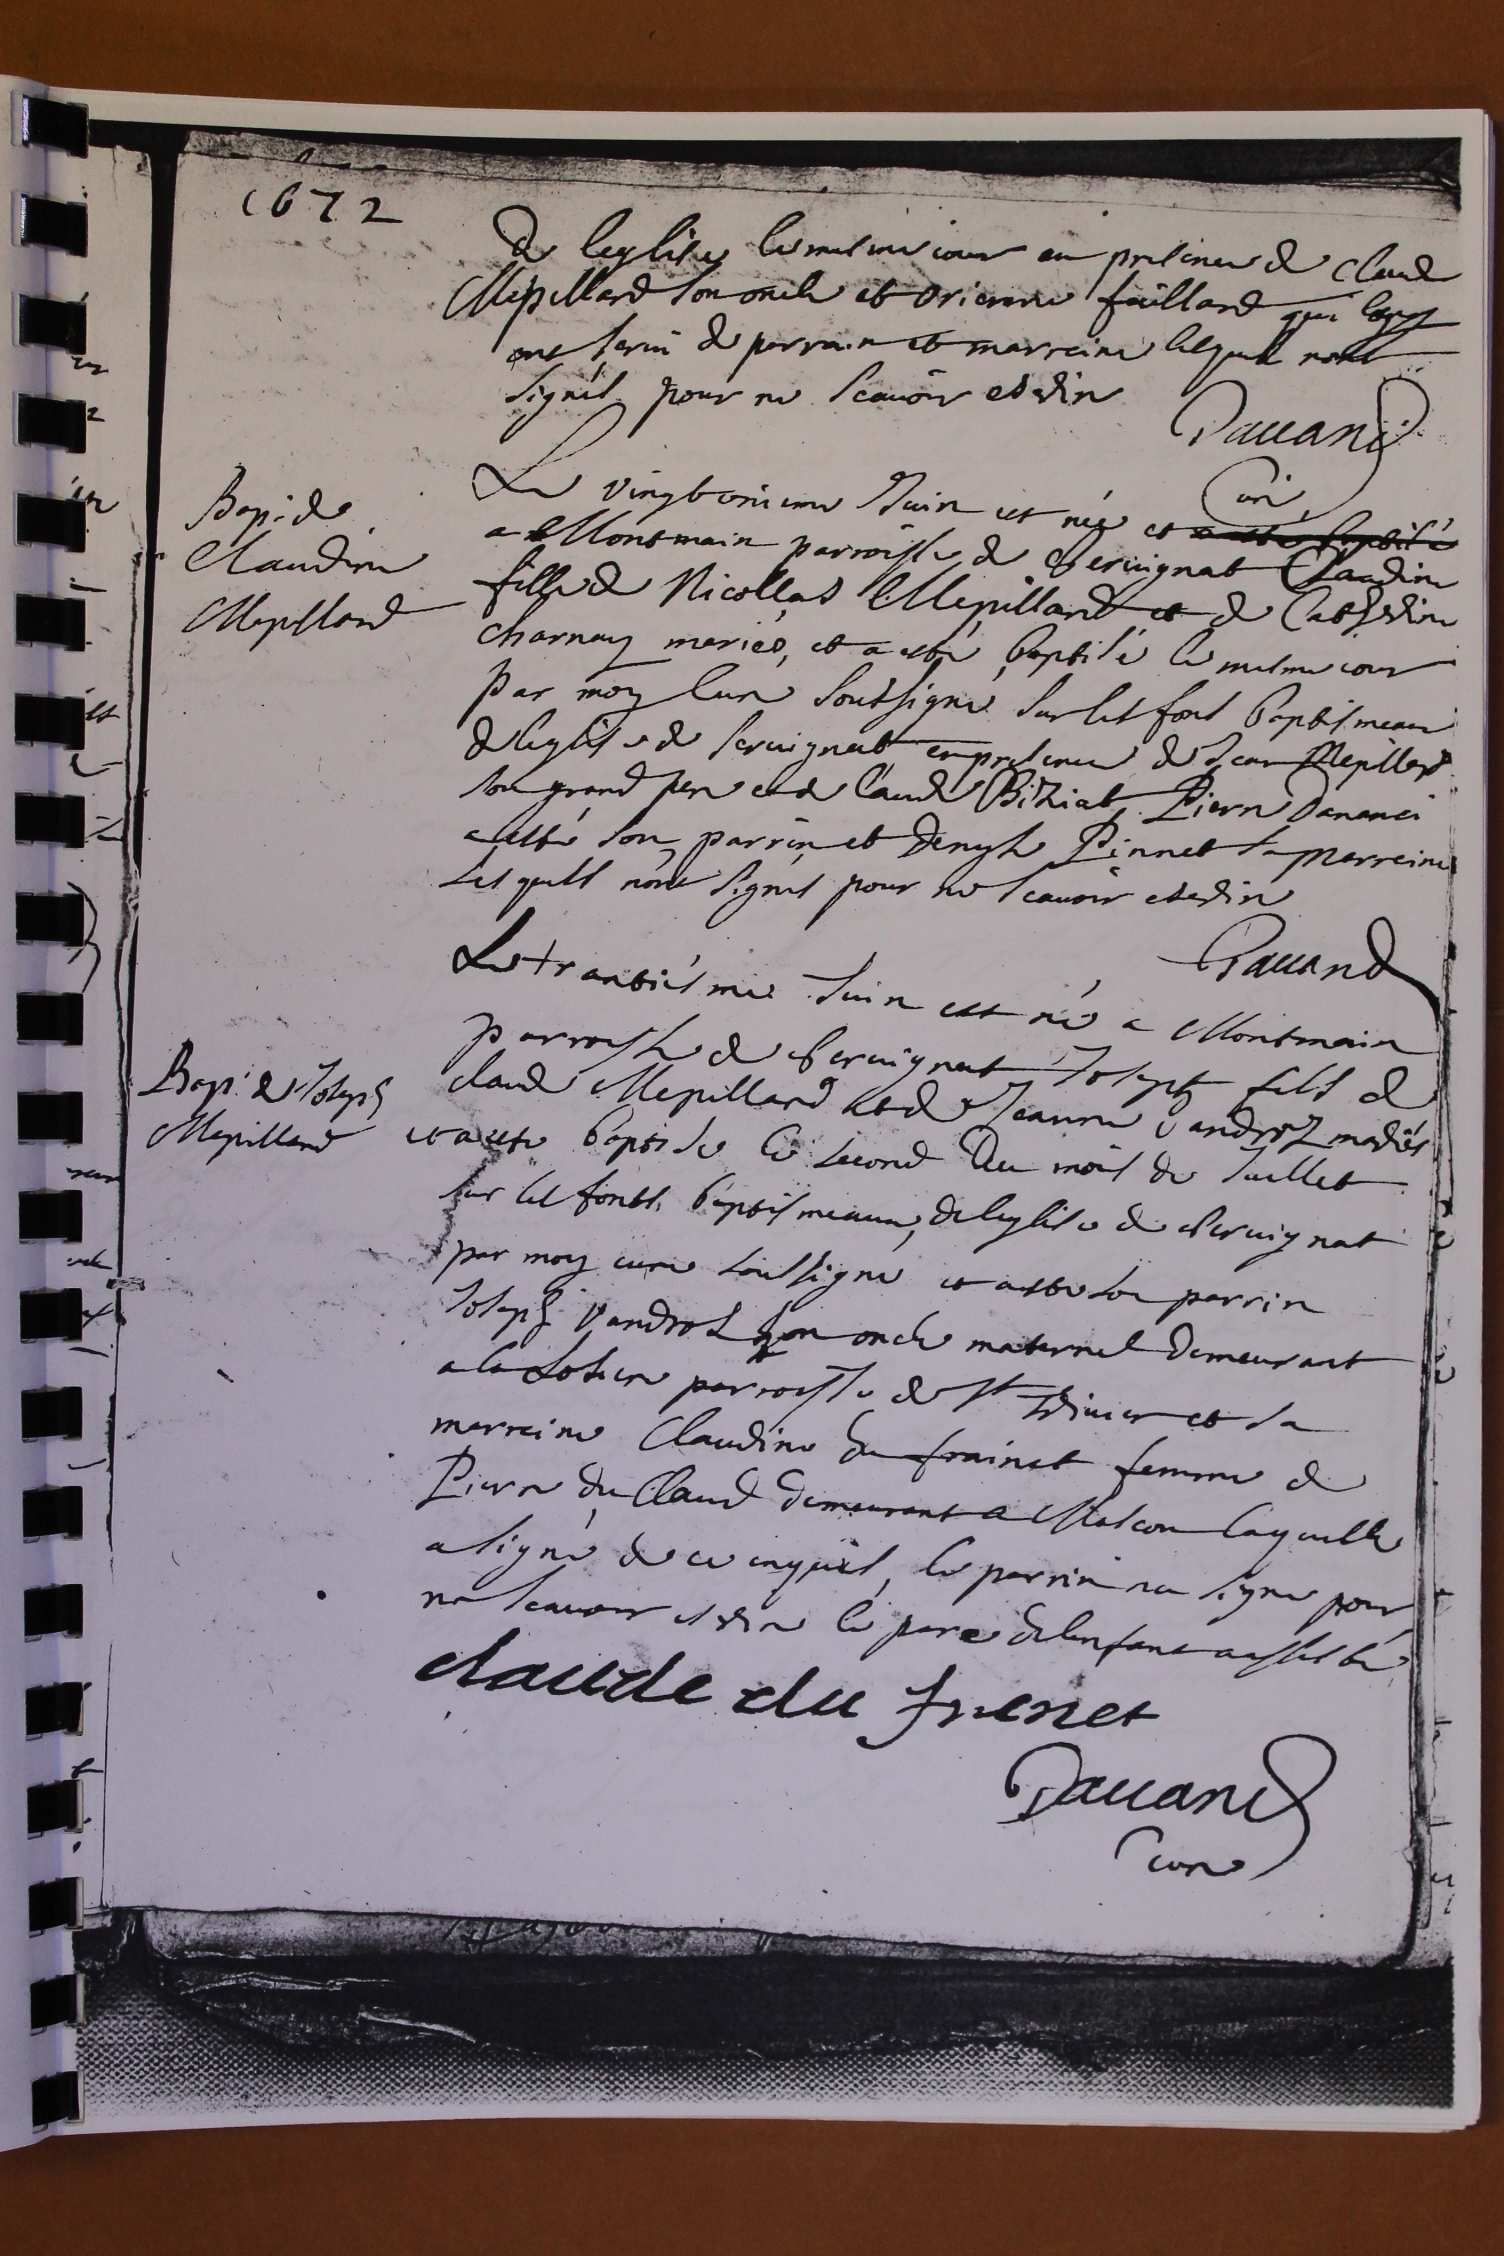 1672
de leglise le mesme iour en presence de Claud
Mepillard son oncle et faillard qui luy
ont serui de parrain et marreine lesquels nont
signés pour ne scauoir escrire
Dauand
Curé
Bap: de
Claudine
Mepillard
Le vingt uniesme Juin est née et a esté baptisé
a Montmain parroisse de Seruignat Claudine
fille de Nicollas Mepillard et de Catherine
charnay mariés, et a esté baptisé le mesme iour
par moy Curé soussigné sur les fons baptismeaux
de leglise de Seruignat en presence de Jean Mepillard
son grand pere et de Claude Biziat, Pierre
a esté son parrin et Denyse Pinnet sa marreine
Lesquels nont signés pour ne scauoir escrire
Dauand
Bap: de Joseph
Mepillard
Le trantiesme Juin est né a Montmain
parroisse de Seruignat Joseph fils de
claude Mepillard et de Jeanne Vandroz mariés
et a esté baptisé le second du mois de Juillet
sur les fonts baptismeaux de leglise de Seruignat
par moy curé soussigné et a esté son parrin
Joseph Vandros son oncle maternel demeurant
a la parroisse de St et sa
marreine Claudine du frainet femme de
Pierre du Claud demeurant a Mascon laquelle
a signé de ce enquis, le parrin na signé pour
ne scauoir escrire le pere de lenfant a assisté
claude du frenet
Dauand
Curé